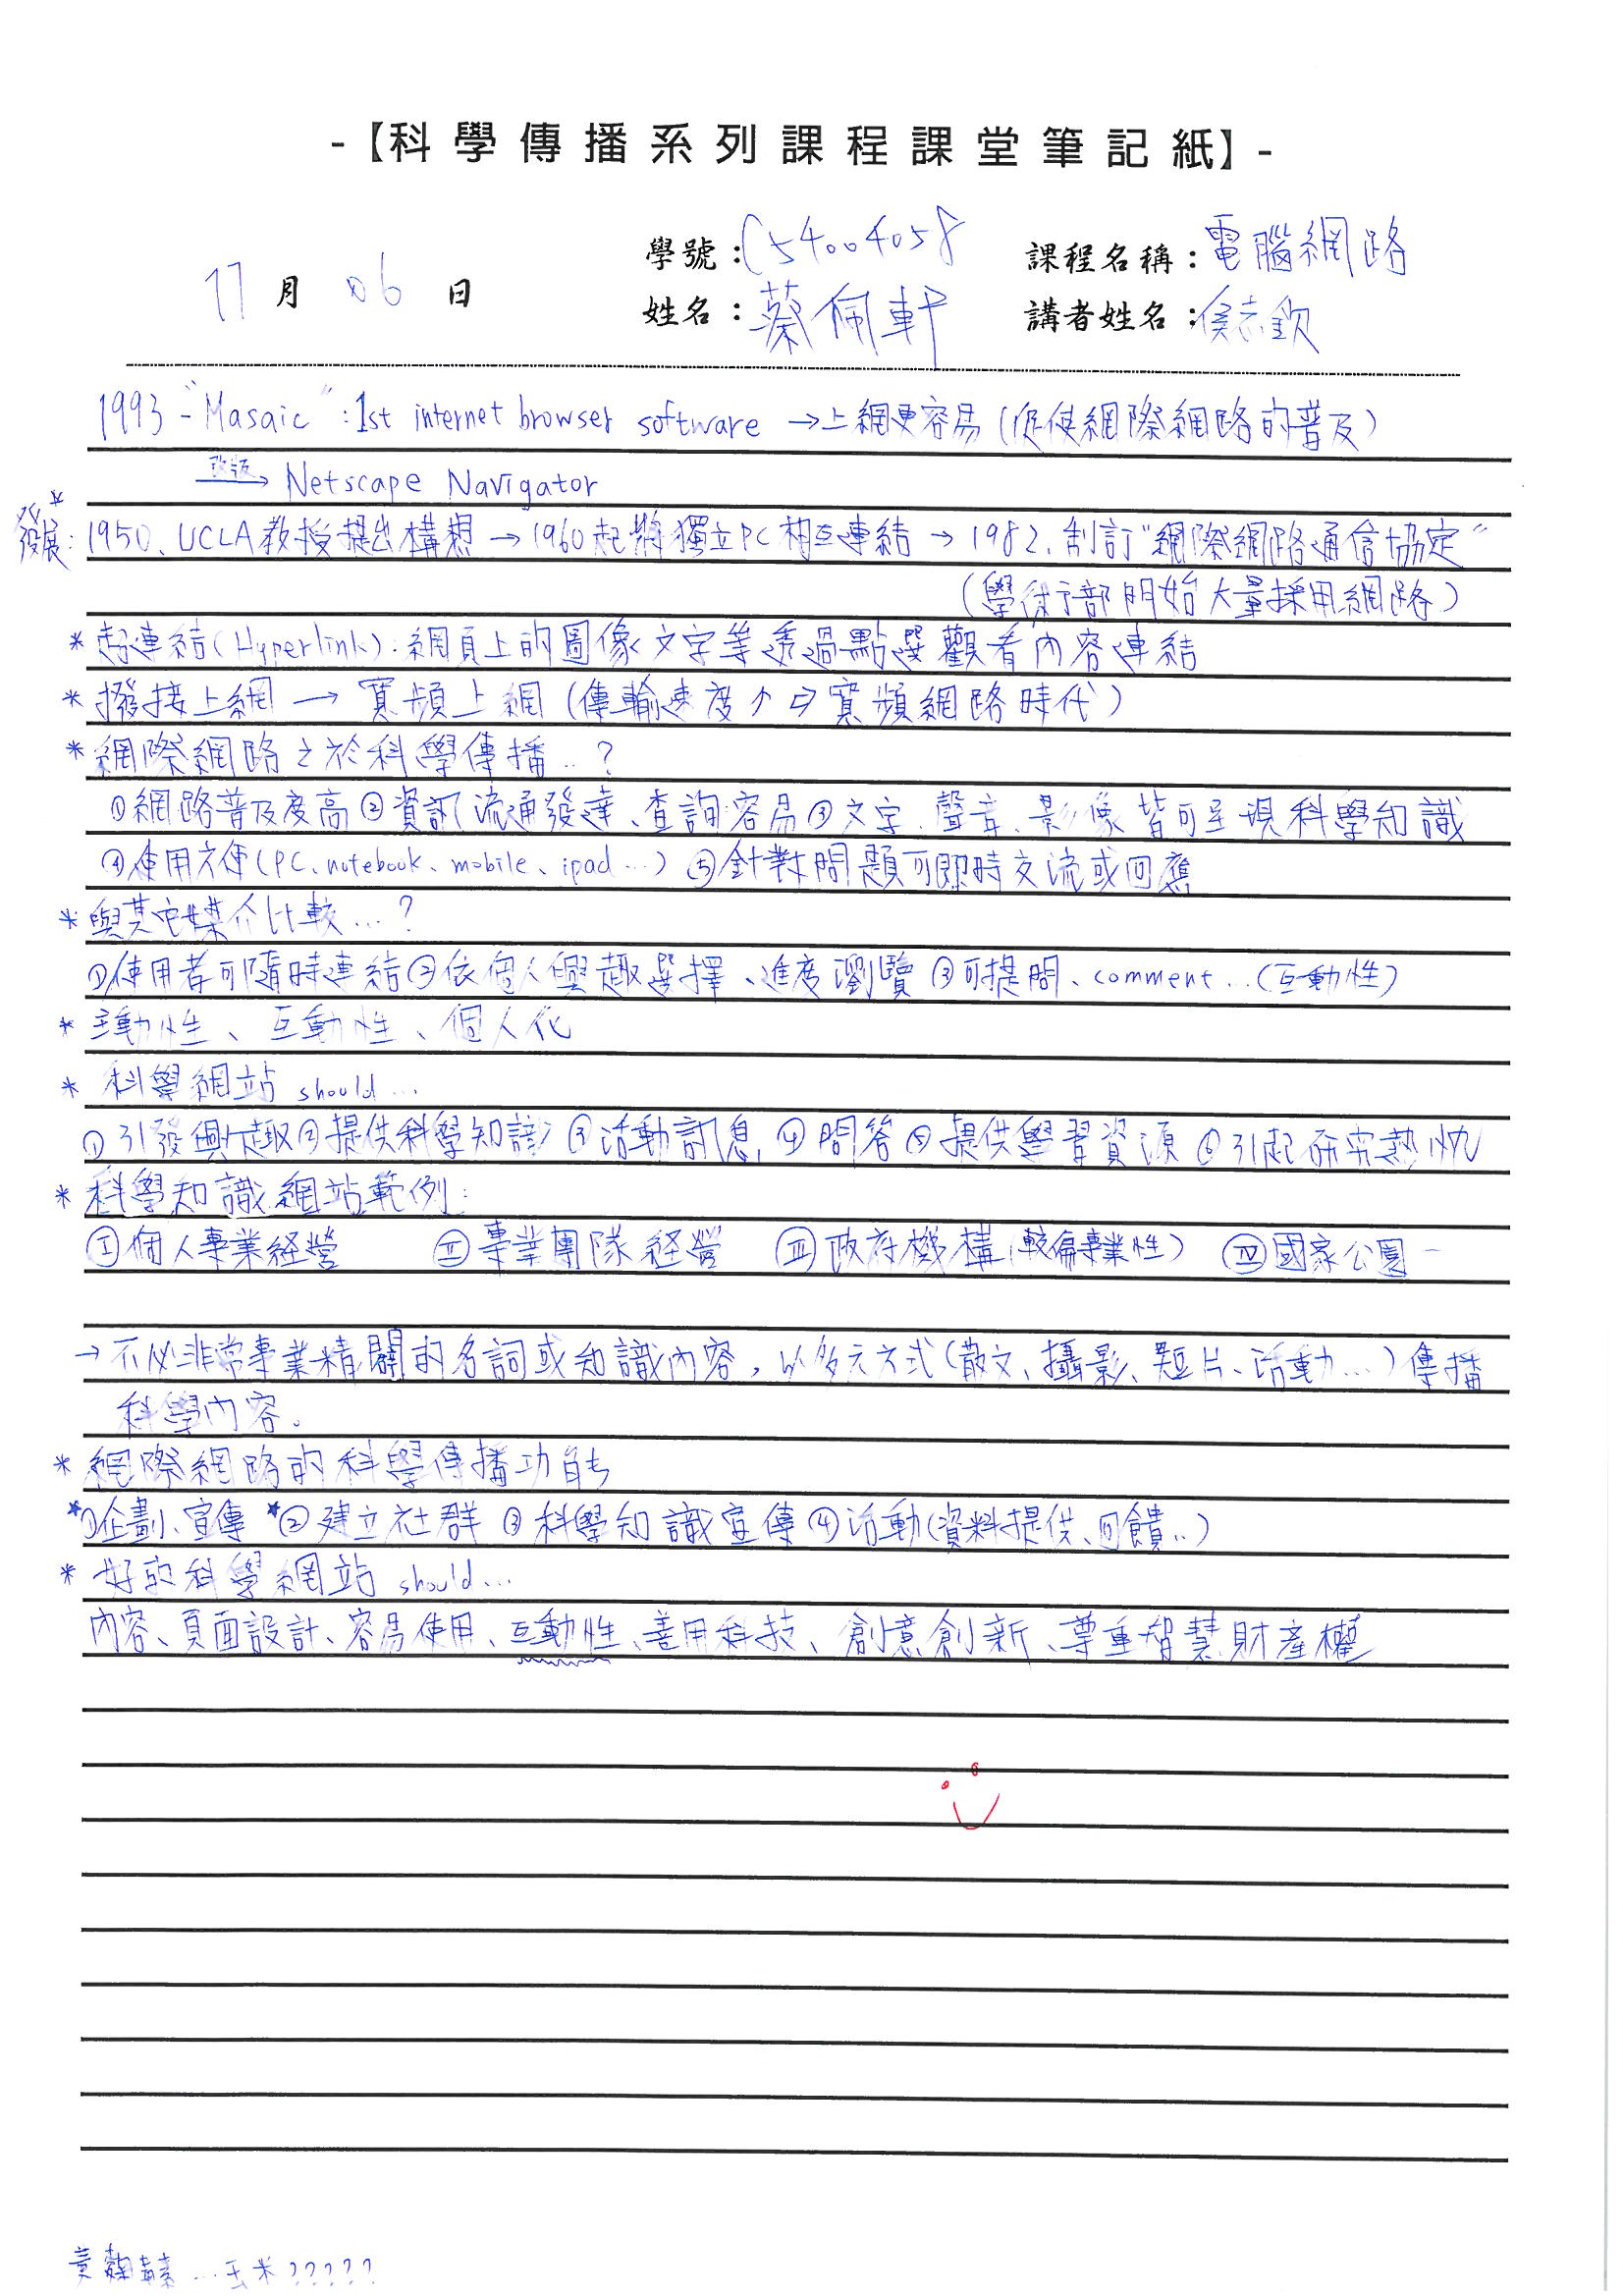 -【科學傳播系列課程課堂筆記紙】-
學號：C54004058 課程名稱：電腦網路
11月06日 姓名：蔡佩軒 講者姓名：侯志欽
1993 - "Masaic" : 1st internet browser software → 上網更容易 (促使網際網路的普及)
改版→ Netscape Navigator
*發展: 1950、UCLA教授提出構想 → 1960起將獨立PC相互連結 → 1982、制訂"網際網路通信協定"
(學術部門開始大量採用網路)
* 超連結(Hyperlink): 網頁上的圖像文字等透過點選觀看內容連結
* 撥接上網 → 寬頻上網 (傳輸速度↑ ⇨ 寬頻網路時代)
* 網際網路之於科學傳播...?
①網路普及度高 ②資訊流通發達、查詢容易 ③文字、聲音、影像皆可呈現科學知識
④使用方便(PC、notebook、mobile、ipad...) ⑤針對問題可即時交流或回應
* 與其它媒介比較...?
①使用者可隨時連結 ②依個人興趣選擇、進度瀏覽 ③可提問、comment...(互動性)
* 主動性、互動性、個人化
* 科學網站 should...
①引發興趣 ②提供科學知識 ③活動訊息 ④問答 ⑤提供學習資源 ⑥引起研究熱忱
* 科學知識網站範例:
Ⓘ個人專業經營 Ⅱ專業團隊經營 Ⅲ政府機構(較偏專業性) Ⅳ國家公園
→ 不必非常專業精闢的名詞或知識內容，以多元方式(散文、攝影、短片、活動...)傳播
科學內容。
* 網際網路的科學傳播功能
*①企劃、宣傳 *②建立社群 ③科學知識宣傳 ④活動(資料提供、回饋..)
* 好的科學網站 should...
內容、頁面設計、容易使用、互動性、善用科技、創意創新、尊重智慧財產權
黃麴毒素...玉米?????